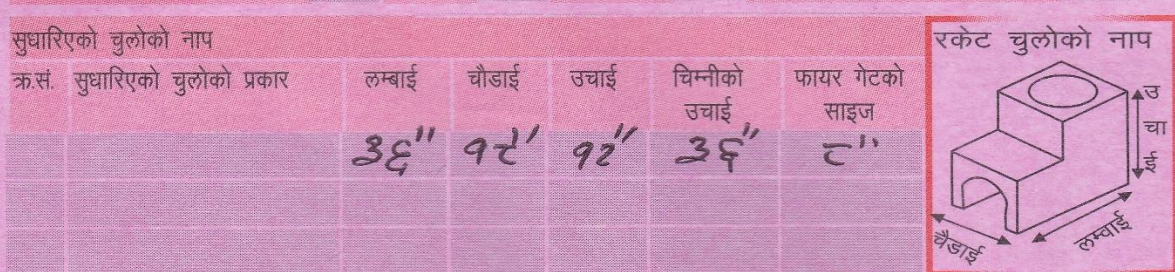 सुधारिएको चुलोको नाप
क्र.सं. सुधारिएको चुलोको प्रकार लम्बाई चौडाई उचाई चिम्नीको उचाई फायर गेटको साइज
३६" १८" १२" ३६" ८"
रकेट चुलोको नाप
उचाई
चैडाई
लम्वाई